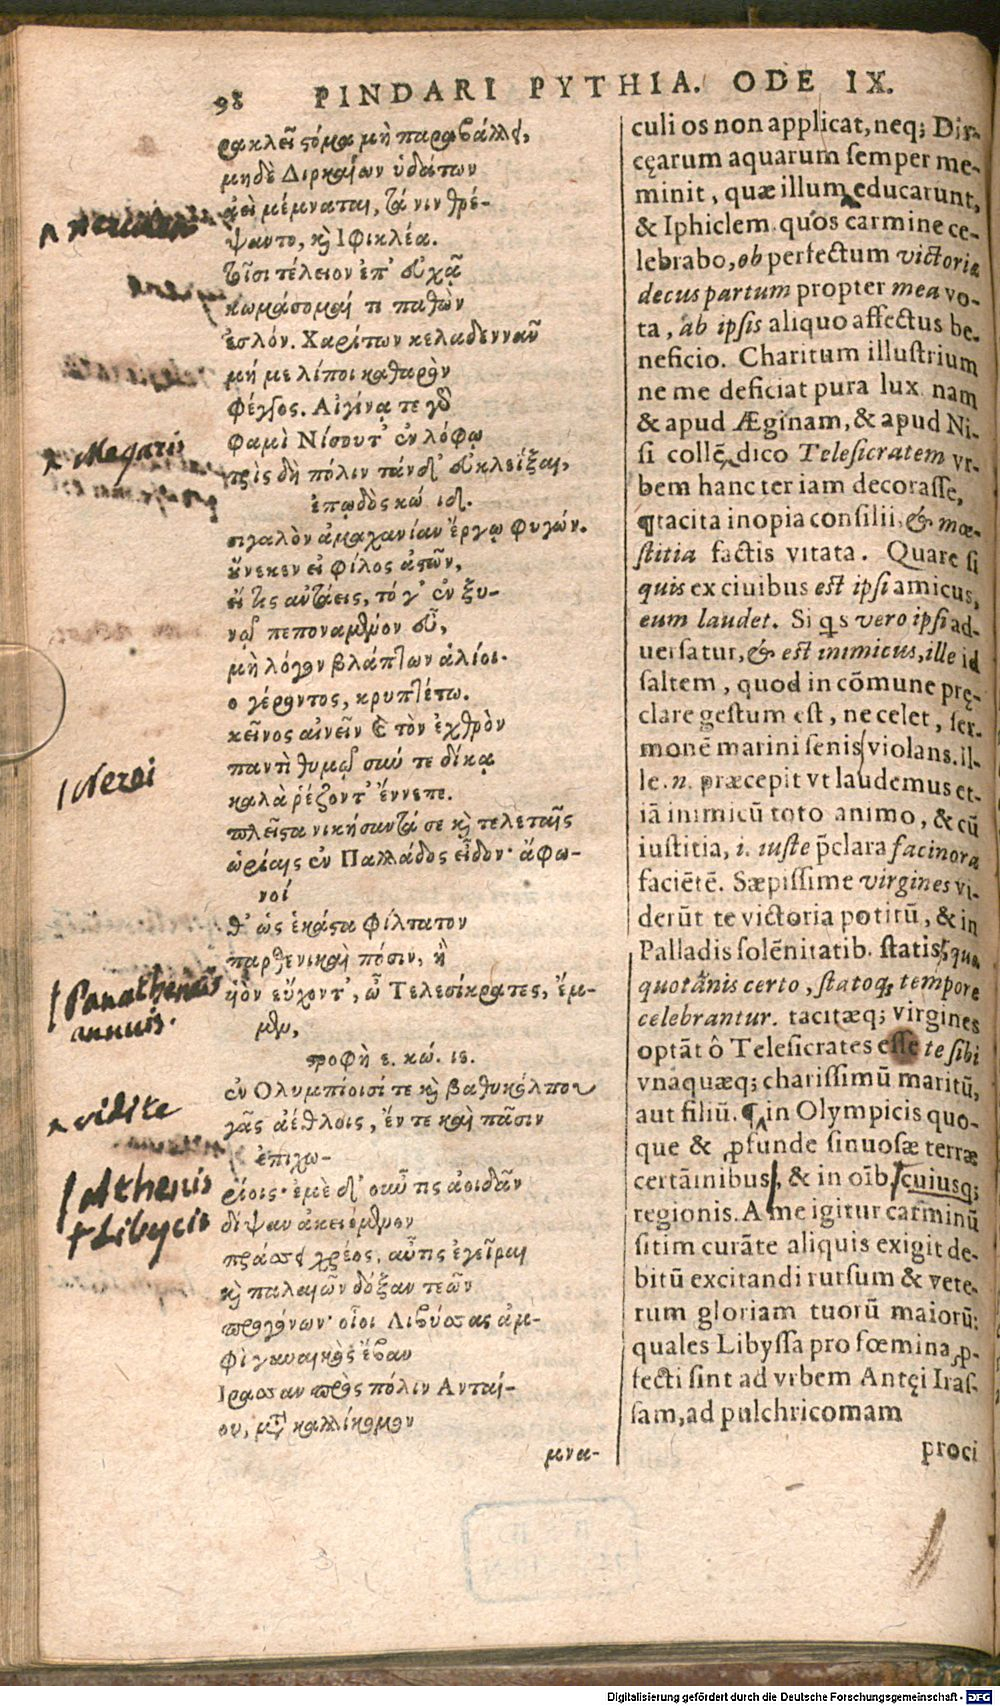 98 PINDARI PYTHIA. ODE IX.
ρακλεῖ στόμα μὴ παραβάλλει,
μηδὲ Διρκαίων ὑδάτων
ἀεὶ μέμναται, τά νιν θρέ-
ψαντο, καὶ Ἰφικλέα.
τοῖσι τέλειον ἐπ' εὐχᾷ
κωμάσομαί τι παθὼν
ἐσλόν. Χαρίτων κελαδεννᾶν
μή με λίποι καθαρὸν
φέγγος. Αἰγίνᾳ τε γὰρ
φαμὶ Νίσου τ' ἐν λόφῳ
τρὶς δὴ πόλιν τάνδ' εὐκλεΐξαι,
ἐπῳδὸς κώ. ιδ.
σιγαλὸν ἀμαχανίαν ἔργῳ φυγών.
οὕνεκεν εἰ φίλος ἀστῶν,
εἴ τις ἀντάεις, τό γ' ἐν ξυ-
νῷ πεποναμένον εὖ,
μὴ λόγον βλάπτων ἁλίοι-
ο γέροντος, κρυπτέτω.
κεῖνος αἰνεῖν καὶ τὸν ἐχθρὸν
παντὶ θυμῷ σύν τε δίκᾳ
καλὰ ῥέζοντ' ἔννεπε.
πλεῖστα νικήσαντά σε καὶ τελεταῖς
ὡρίαις ἐν Παλλάδος εἶδον· ἄφω-
νοί
θ' ὡς ἑκάστα φίλτατον
παρθενικαὶ πόσιν, ἢ
υἱὸν εὔχοντ', ὦ Τελεσίκρατες, ἔμ-
μεν,
στροφὴ ε. κώ. ιε.
ἐν Ὀλυμπίοισί τε καὶ βαθυκόλπου
γᾶς ἀέθλοις, ἔν τε καὶ πᾶσιν
ἐπιχω-
ρίοις· ἐμὲ δ' οὖν τις ἀοιδᾶν
δίψαν ἀκειόμενον
πράσσει χρέος, αὖτις ἐγεῖραι
καὶ παλαιῶν δόξαν τεῶν
προγόνων· οἷοι Λιβύσσας ἀμ-
φὶ γυναικὸς ἔβαν
Ἴρασσαν πρὸς πόλιν Ἀνταί-
ου, μετὰ καλλίκομον
μνα-
culi os non applicat, neq; Dir-
cęarum aquarum semper me-
minit, quæ illum educarunt,
& Iphiclem. quos carmine ce-
lebrabo, ob perfectum victoriæ
decus partum propter mea vo-
ta, ab ipsis aliquo affectus be-
neficio. Charitum illustrium
ne me deficiat pura lux. nam
& apud Æginam, & apud Ni-
si collē dico Telesicratem vr-
bem hanc ter iam decorasse,
¶tacita inopia consilii, & mœ-
stitia factis vitata. Quare si
quis ex ciuibus est ipsi amicus,
eum laudet. Si qs vero ipsi ad-
uersatur, & est inimicus, ille id
saltem, quod in cōmune prę-
clare gestum est, ne celet, ser-
monē marini senis violans. il-
le .n. præcepit vt laudemus et-
iā inimicū toto animo, & cū
iustitia, i. iuste p̄clara facinora
faciētē. Sæpissime virgines vi-
derūt te victoria potitū, & in
Palladis solēnitatib. statis, quæ
quotānis certo, statoq; tempore
celebrantur. tacitæq; virgines
optāt ô Telesicrates esse te sibi
vnaquæq; charissimū maritū,
aut filiū. ¶ in Olympicis quo-
que & ꝓfunde sinuosæ terræ
certāinibus, & in oīb. cuiusq;
regionis. A me igitur carminū
sitim curāte aliquis exigit de-
bitū excitandi rursum & vete-
rum gloriam tuorū maiorū:
quales Libyssa pro fœmina ꝓ-
fecti sint ad vrbem Antęi Iras-
sam, ad pulchricomam
proci
Megaris
Nerei
Panathenæis
annuis.
vidite
Athenis
Libycis
Digitalisierung gefördert durch die Deutsche Forschungsgemeinschaft - DFG